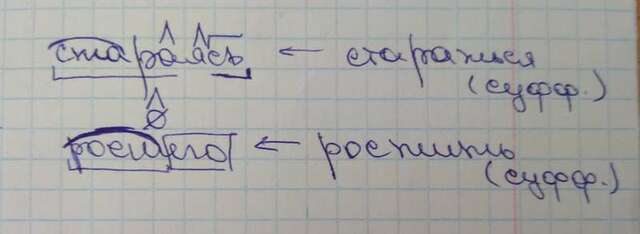 стараясь ← стараться
(суфф.)
∅
росшего ← ростить
(суфф.)